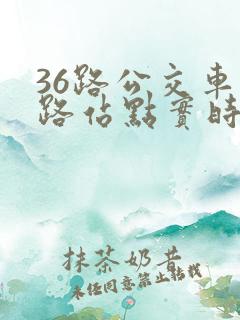 36路公交車
路佔點實時
抹茶奶昔
未经同意禁止转载